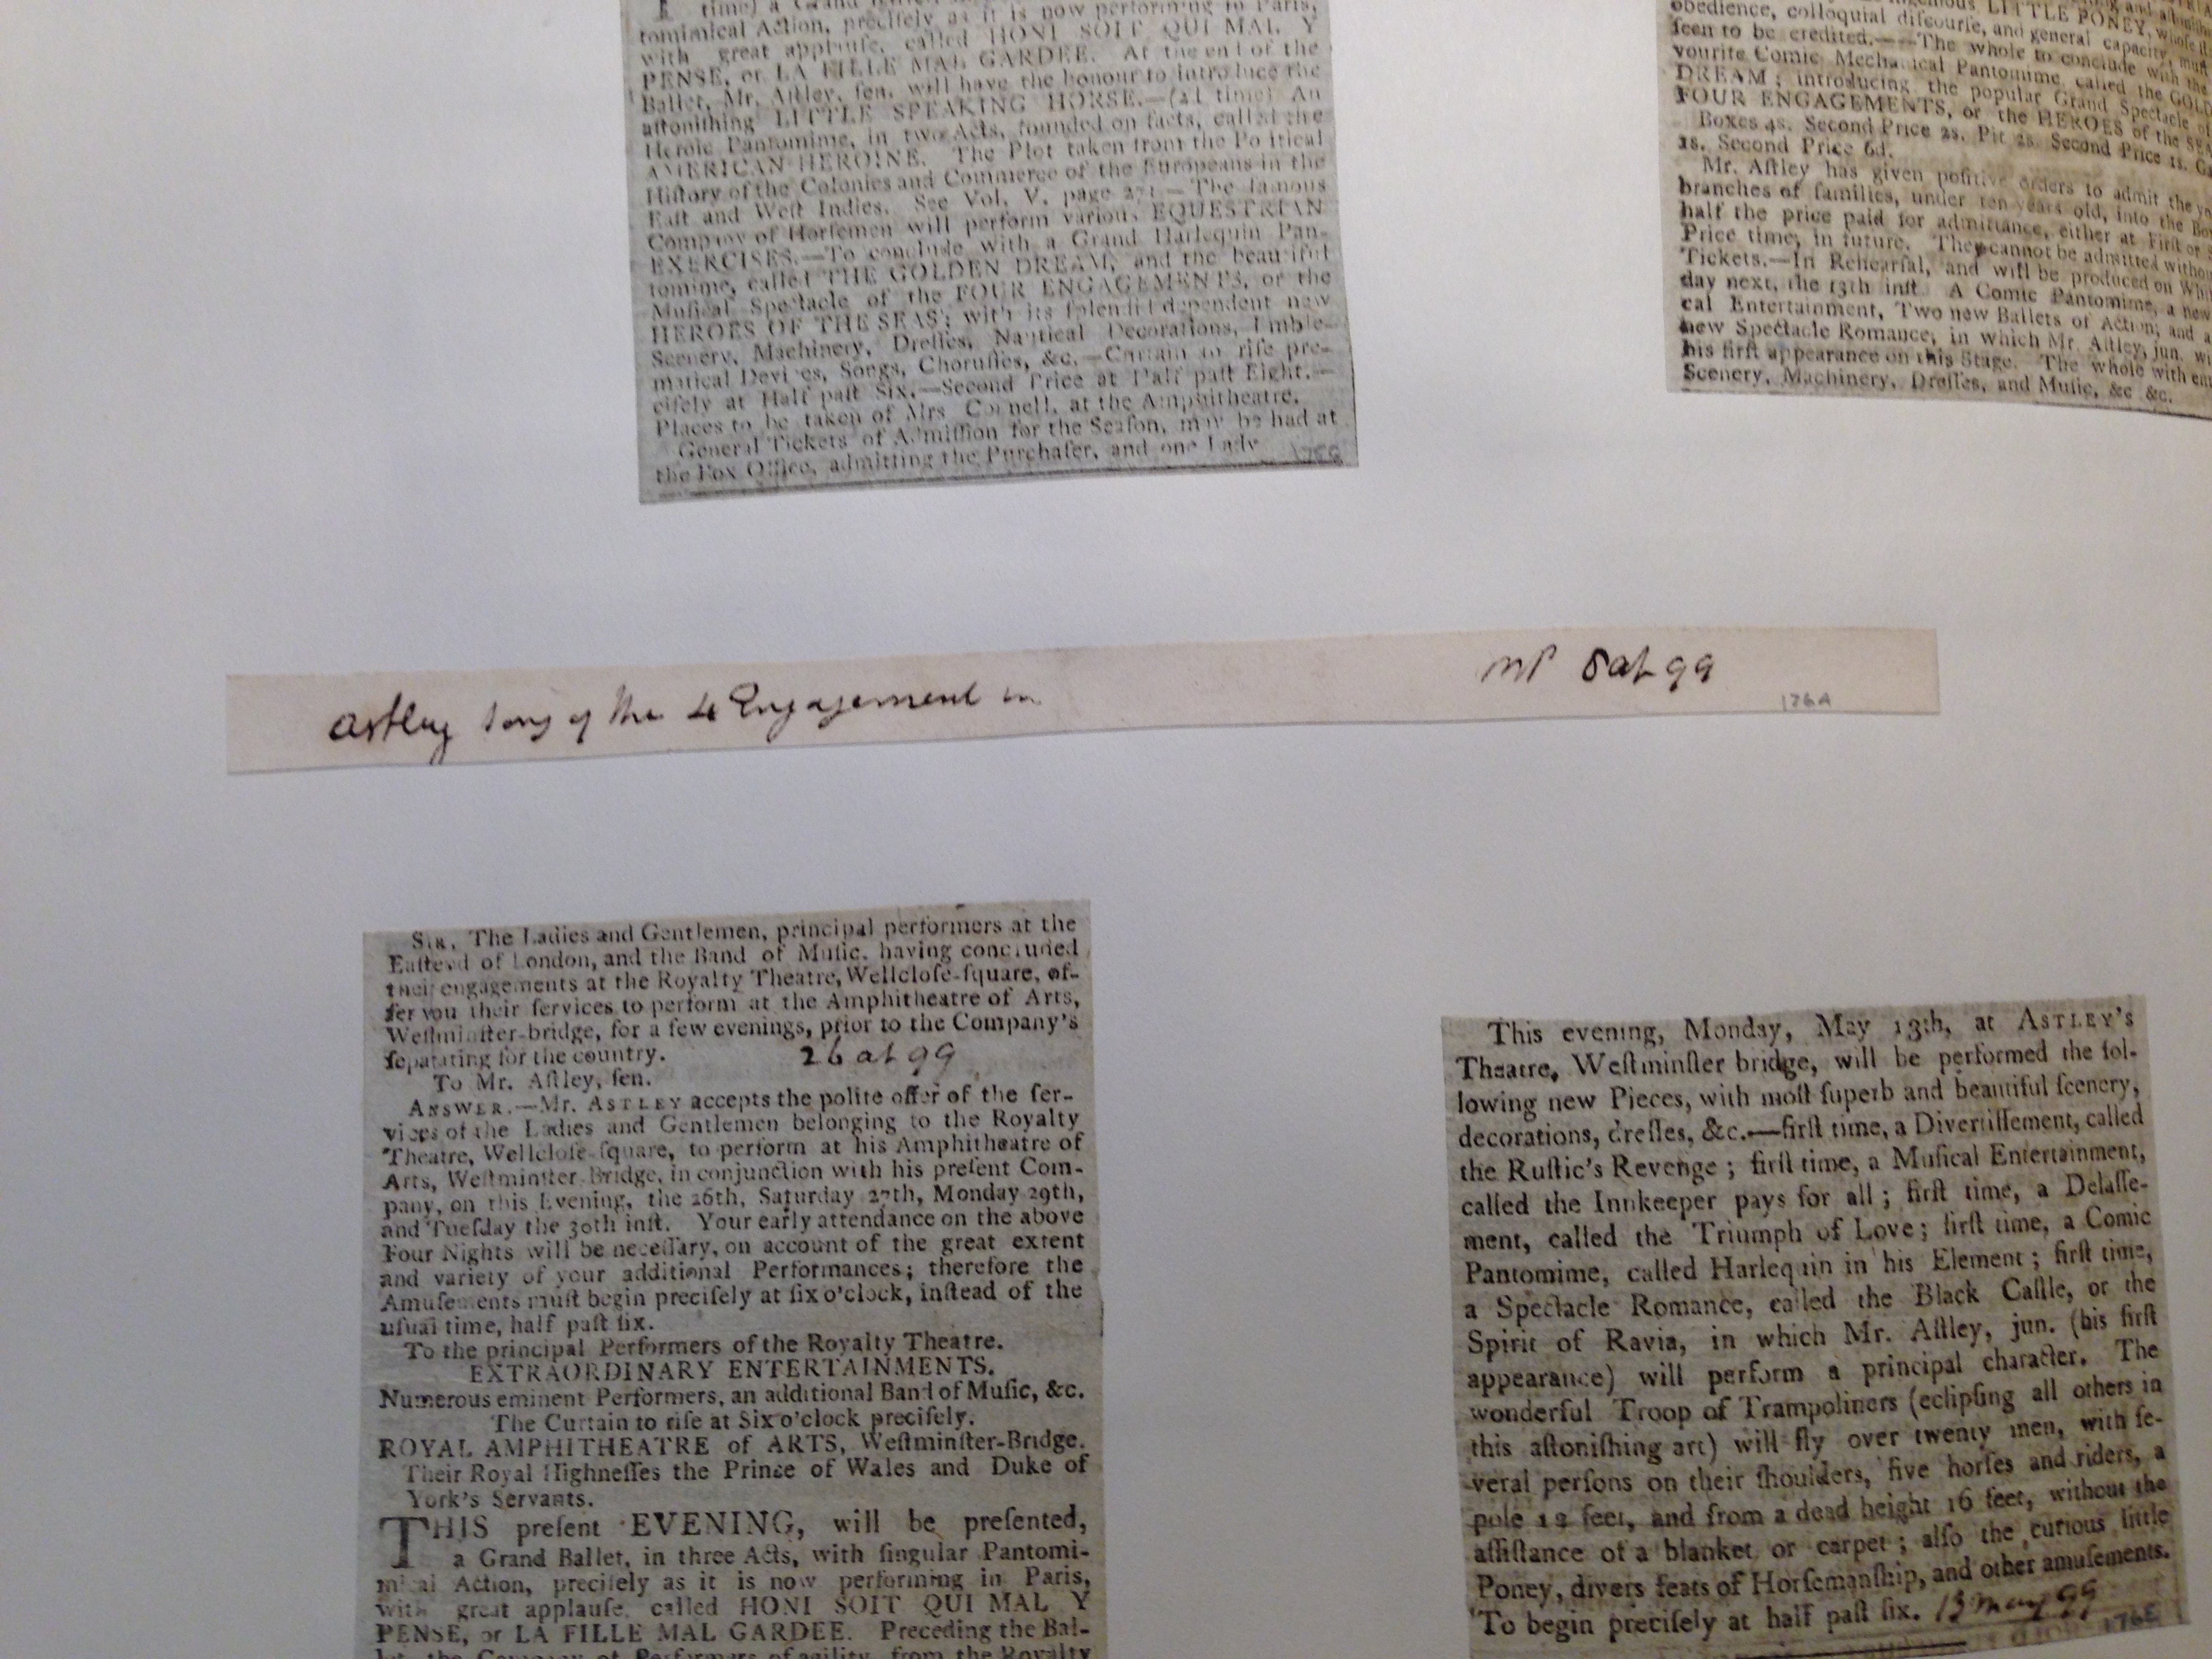 time) a Grand
tomimical Action, precifely as it is now performing in Paris,
with great applaufe, called HONI SOIT QUI MAL Y
PENSE, or LA FILLE MAL GARDEE. At the end of the
Ballet, Mr. Aftley, fen. will have the honour to introduce the
aftonifhing LITTLE SPEAKING HORSE.—(2d time) An
Heroic Pantomime, in two Acts, founded on facts, called the
AMERICAN HEROINE. The Plot taken from the Political
Hiftory of the Colonies and Commerce of the Europeans in the
Eaft and Weft Indies. See Vol. V. page 271.—The famous
Company of Horfemen will perform various EQUESTRIAN
EXERCISES.—To conclude with a Grand Harlequin Pan-
tomime, called THE GOLDEN DREAM; and the beautiful
Mufical Spectacle of the FOUR ENGAGEMENTS, or the
HEROES OF THE SEAS; with its fplendid dependent new
Scenery, Machinery, Dreffes, Nautical Decorations, Emble-
matical Devices, Songs, Choruffes, &c.—Curtain to rife pre-
cifely at Half paft Six.—Second Price at Half paft Eight.—
Places to be taken of Mrs. Connell, at the Amphitheatre.
General Tickets of Admiffion for the Seafon, may be had at
the Box Office, admitting the Purchafer, and one Lady
LITTLE PONEY, whofe
obedience, colloquial difcourfe, and general capacity, muft
feen to be credited.——The whole to conclude with the
vourite Comic Mechanical Pantomime called the GOLD
DREAM; introducing the popular Grand Spectacle of
FOUR ENGAGEMENTS, or the HEROES of the SEA
Boxes 4s. Second Price 2s. Pit 2s. Second Price 1s. Ga
1s. Second Price 6d.
Mr. Aftley has given pofitive orders to admit the yo
branches of families, under ten years old, into the Box
half the price paid for admittance, either at Firft or
Price time, in future. They cannot be admitted withou
Tickets.—In Rehearfal, and will be produced on Whit
day next, the 13th inft. A Comic Pantomime, a new
cal Entertainment, Two new Ballets of Action; and a
new Spectacle Romance, in which Mr. Aftley, jun. wi
his firft appearance on this Stage. The whole with en
Scenery, Machinery, Dreffes, and Mufic, &c &c.
Astley song of the 4 Engagement in MP 8 ap 99
176A
SIR, The Ladies and Gentlemen, principal performers at the
Eaftend of London, and the Band of Mufic, having concluded
their engagements at the Royalty Theatre, Wellclofe-fquare, of-
fer you their fervices to perform at the Amphitheatre of Arts,
Weftminfter-bridge, for a few evenings, prior to the Company's
feparating for the country. 26 ap 99
To Mr. Aftley, fen.
ANSWER.—Mr. ASTLEY accepts the polite offer of the fer-
vices of the Ladies and Gentlemen belonging to the Royalty
Theatre, Wellclofe-fquare, to perform at his Amphitheatre of
Arts, Weftminfter Bridge, in conjunction with his prefent Com-
pany, on this Evening, the 26th, Saturday 27th, Monday 29th,
and Tuefday the 30th inft. Your early attendance on the above
Four Nights will be neceffary, on account of the great extent
and variety of your additional Performances; therefore the
Amufements muft begin precifely at fix o'clock, inftead of the
ufual time, half paft fix.
To the principal Performers of the Royalty Theatre.
EXTRAORDINARY ENTERTAINMENTS.
Numerous eminent Performers, an additional Band of Mufic, &c.
The Curtain to rife at Six o'clock precifely.
ROYAL AMPHITHEATRE of ARTS, Weftminfter-Bridge.
Their Royal Highneffes the Prince of Wales and Duke of
York's Servants.
THIS prefent EVENING, will be prefented,
a Grand Ballet, in three Acts, with fingular Pantomi-
mical Action, precifely as it is now performing in Paris,
with great applaufe, called HONI SOIT QUI MAL Y
PENSE, or LA FILLE MAL GARDEE. Preceding the Bal-
let, the Company of Performers of agility, from the Royalty
This evening, Monday, May 13th, at ASTLEY's
Theatre, Weftminfter bridge, will be performed the fol-
lowing new Pieces, with moft fuperb and beautiful fcenery,
decorations, dreffes, &c.—firft time, a Divertiffement, called
the Ruftic's Revenge; firft time, a Mufical Entertainment,
called the Innkeeper pays for all; firft time, a Delaffe-
ment, called the Triumph of Love; firft time, a Comic
Pantomime, called Harlequin in his Element; firft time,
a Spectacle Romance, called the Black Caftle, or the
Spirit of Ravia, in which Mr. Aftley, jun. (his firft
appearance) will perform a principal character. The
wonderful Troop of Trampoliners (eclipfing all others in
this aftonifhing art) will fly over twenty men, with fe-
veral perfons on their fhoulders, five horfes and riders, a
pole 12 feet, and from a dead height 16 feet, without the
affiftance of a blanket or carpet; alfo the curious little
Poney, divers feats of Horfemanfhip, and other amufements.
To begin precifely at half paft fix. 13 may 99
176E